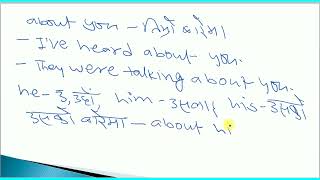 about you - तिम्रो बारेमा
- I've heard about you.
- They were talking about you.
he - ऊ, उहाँ, him - उसलाई, his - उसको
उसको बारेमा - about hi